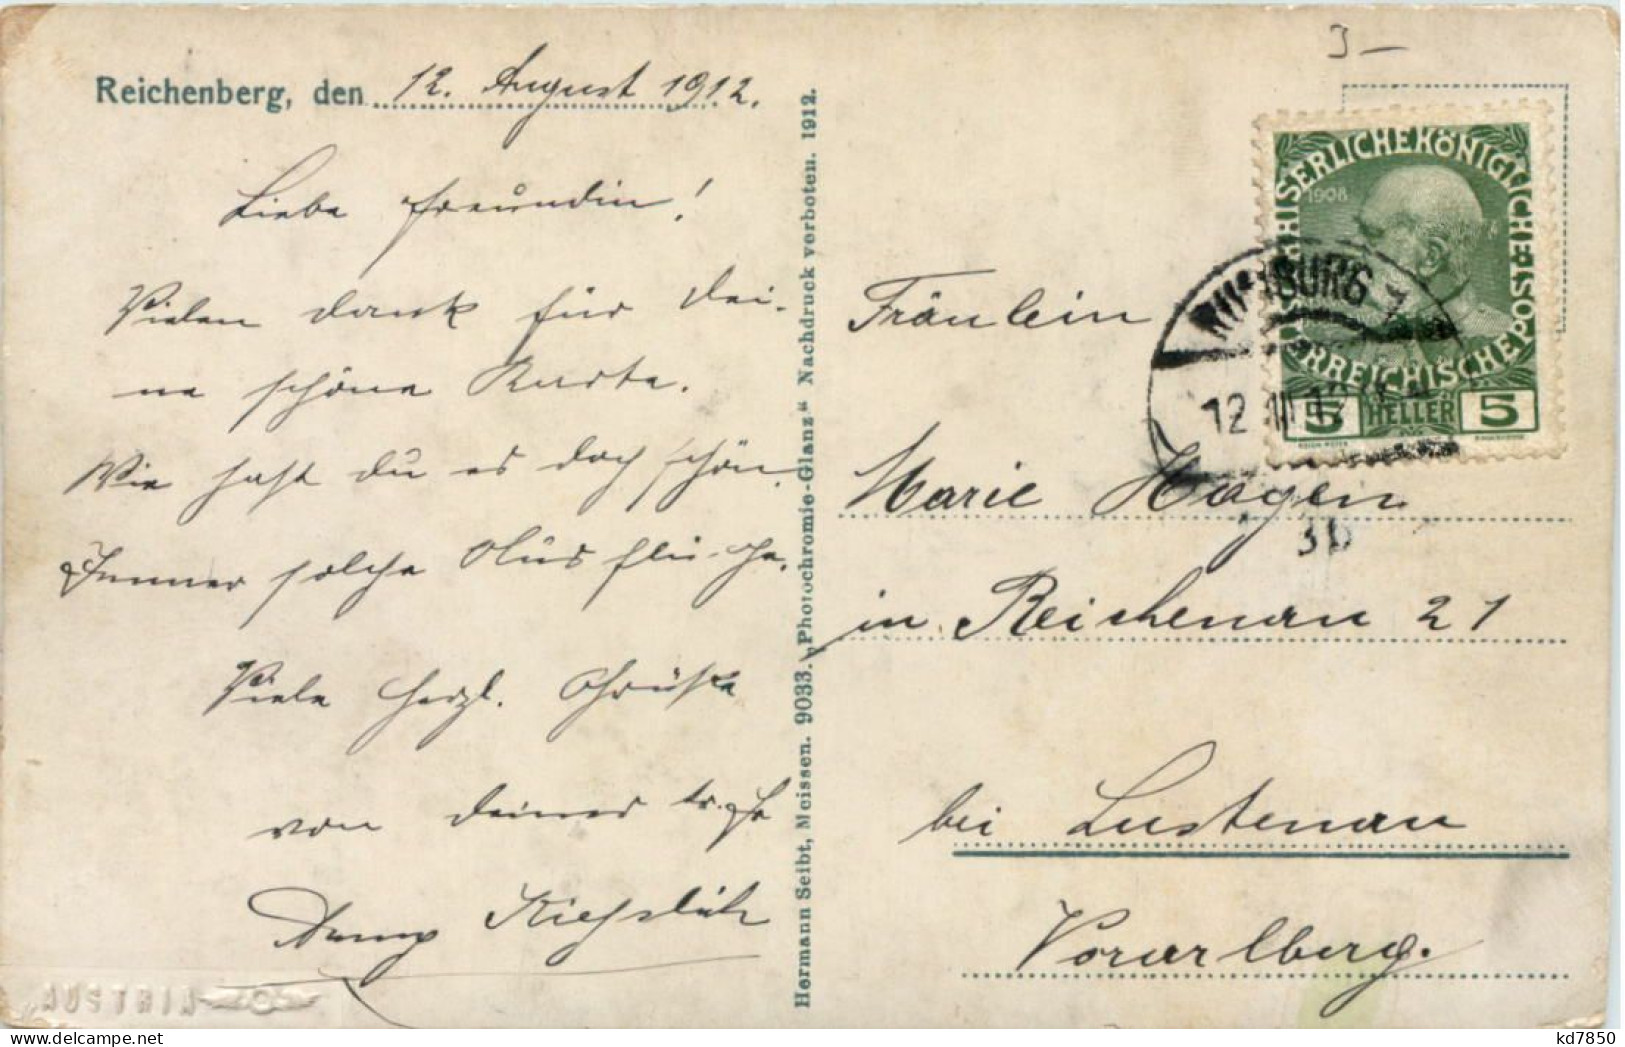 Reichenberg, den 12. August 1912.
Liebe Freundin!
Vielen Dank für dei-
ne schöne Karte.
Wie hast du es doch schön,
Immer solche Aus flü-ge.
Viele herzl. Grüße
von deiner
Hermann Seibt, Meissen. 9033. „Photochromie-Glanz“ Nachdruck verboten. 1912.
3 –
KAISERLICHE KÖNIGLICHE ÖSTERREICHISCHE POST
1908
5 HELLER 5
12
3b
Fräulein
Marie Hagen
in Reichenau 21
bei Lustenau
Vorarlberg.
AUSTRIA
kd7850